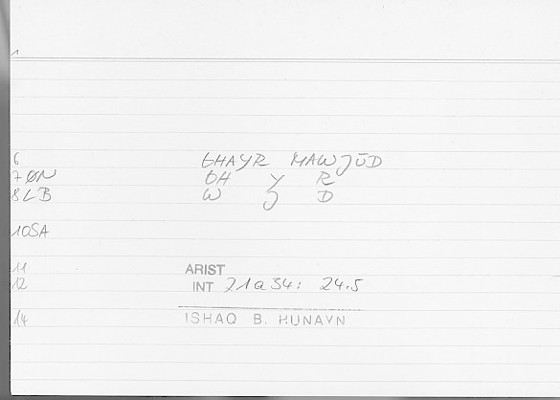 1
6 GHAYR MAWJŪD
7 ØN GH Y R
8 LB W J D
10 SA
11 ARIST
12 INT 21a34: 24.5
14 ISHAQ B. HUNAYN